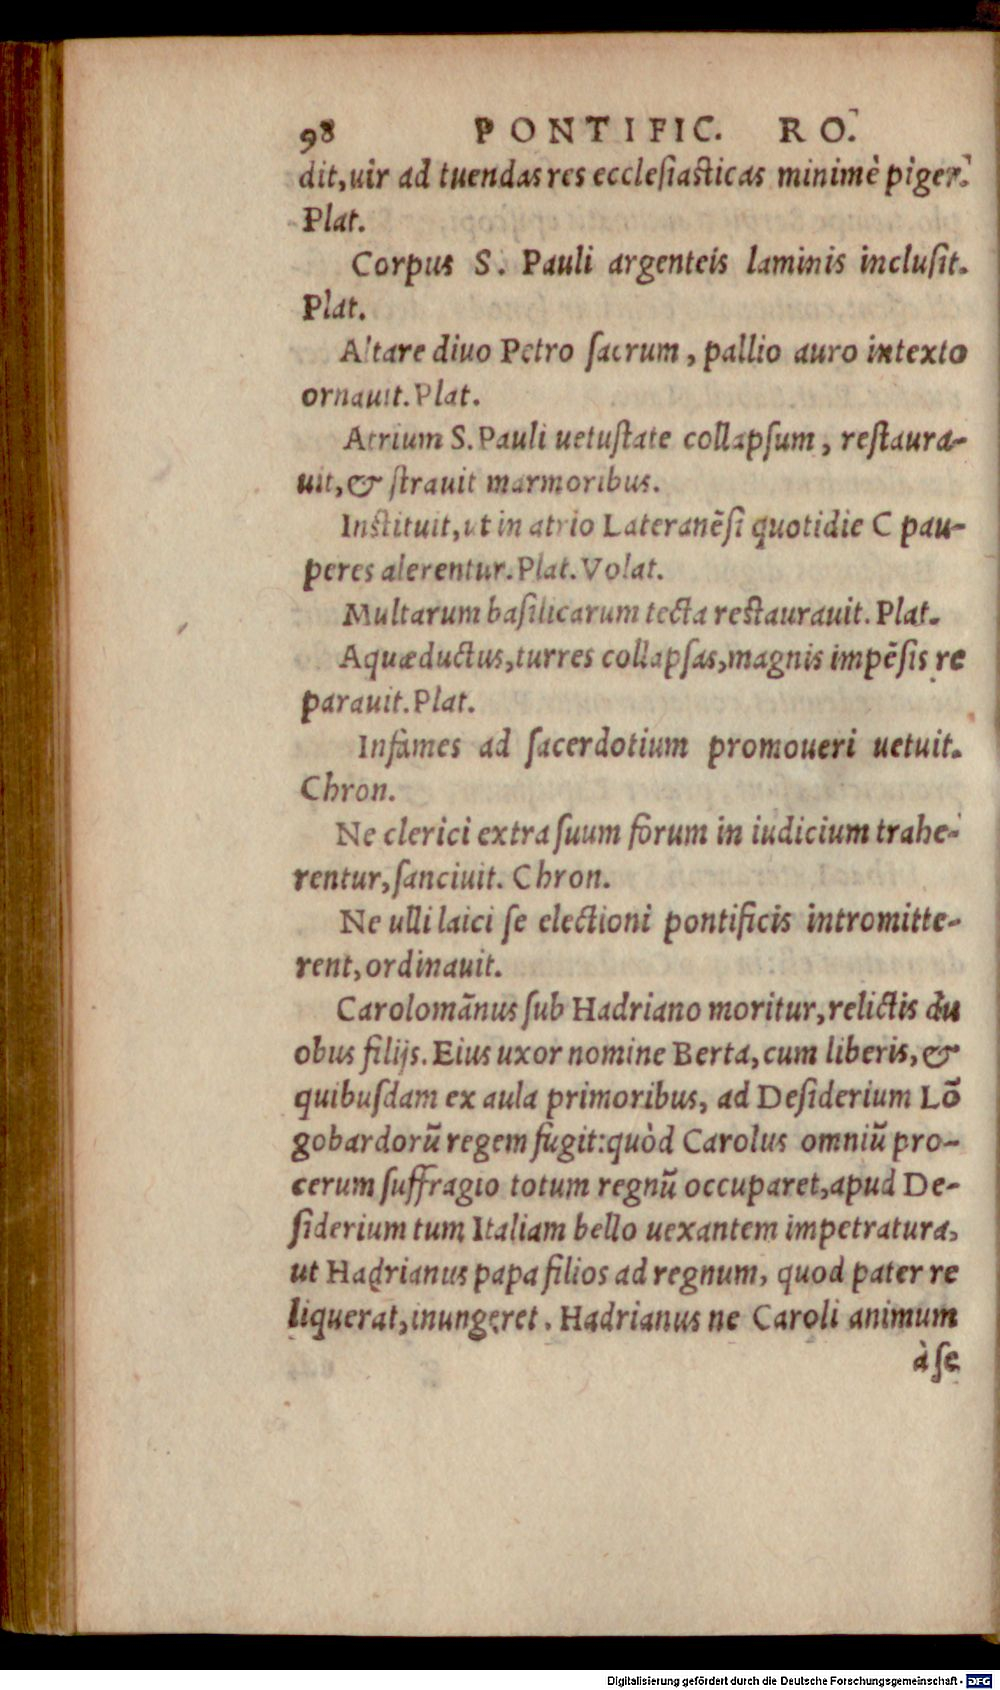 98 PONTIFIC. RO.
dit, uir ad tuendas res ecclesiasticas minimè piger.
Plat.
Corpus S. Pauli argenteis laminis inclusit.
Plat.
Altare diuo Petro sacrum, pallio auro intexto
ornauit. Plat.
Atrium S. Pauli uetustate collapsum, restaura-
uit, & strauit marmoribus.
Instituit, ut in atrio Lateranẽsi quotidie C pau-
peres alerentur. Plat. Volat.
Multarum basilicarum tecta restaurauit. Plat.
Aquæductus, turres collapsas, magnis impẽsis re
parauit. Plat.
Infames ad sacerdotium promoueri uetuit.
Chron.
Ne clerici extra suum forum in iudicium trahe-
rentur, sanciuit. Chron.
Ne ulli laici se electioni pontificis intromitte-
rent, ordinauit.
Carolomãnus sub Hadriano moritur, relictis du
obus filijs. Eius uxor nomine Berta, cum liberis, &
quibusdam ex aula primoribus, ad Desiderium Lõ
gobardorũ regem fugit: quòd Carolus omniũ pro-
cerum suffragio totum regnũ occuparet, apud De-
siderium tum Italiam bello uexantem impetratura,
ut Hadrianus papa filios ad regnum, quod pater re
liquerat, inungeret. Hadrianus ne Caroli animum
à se
Digitalisierung gefördert durch die Deutsche Forschungsgemeinschaft - DFG